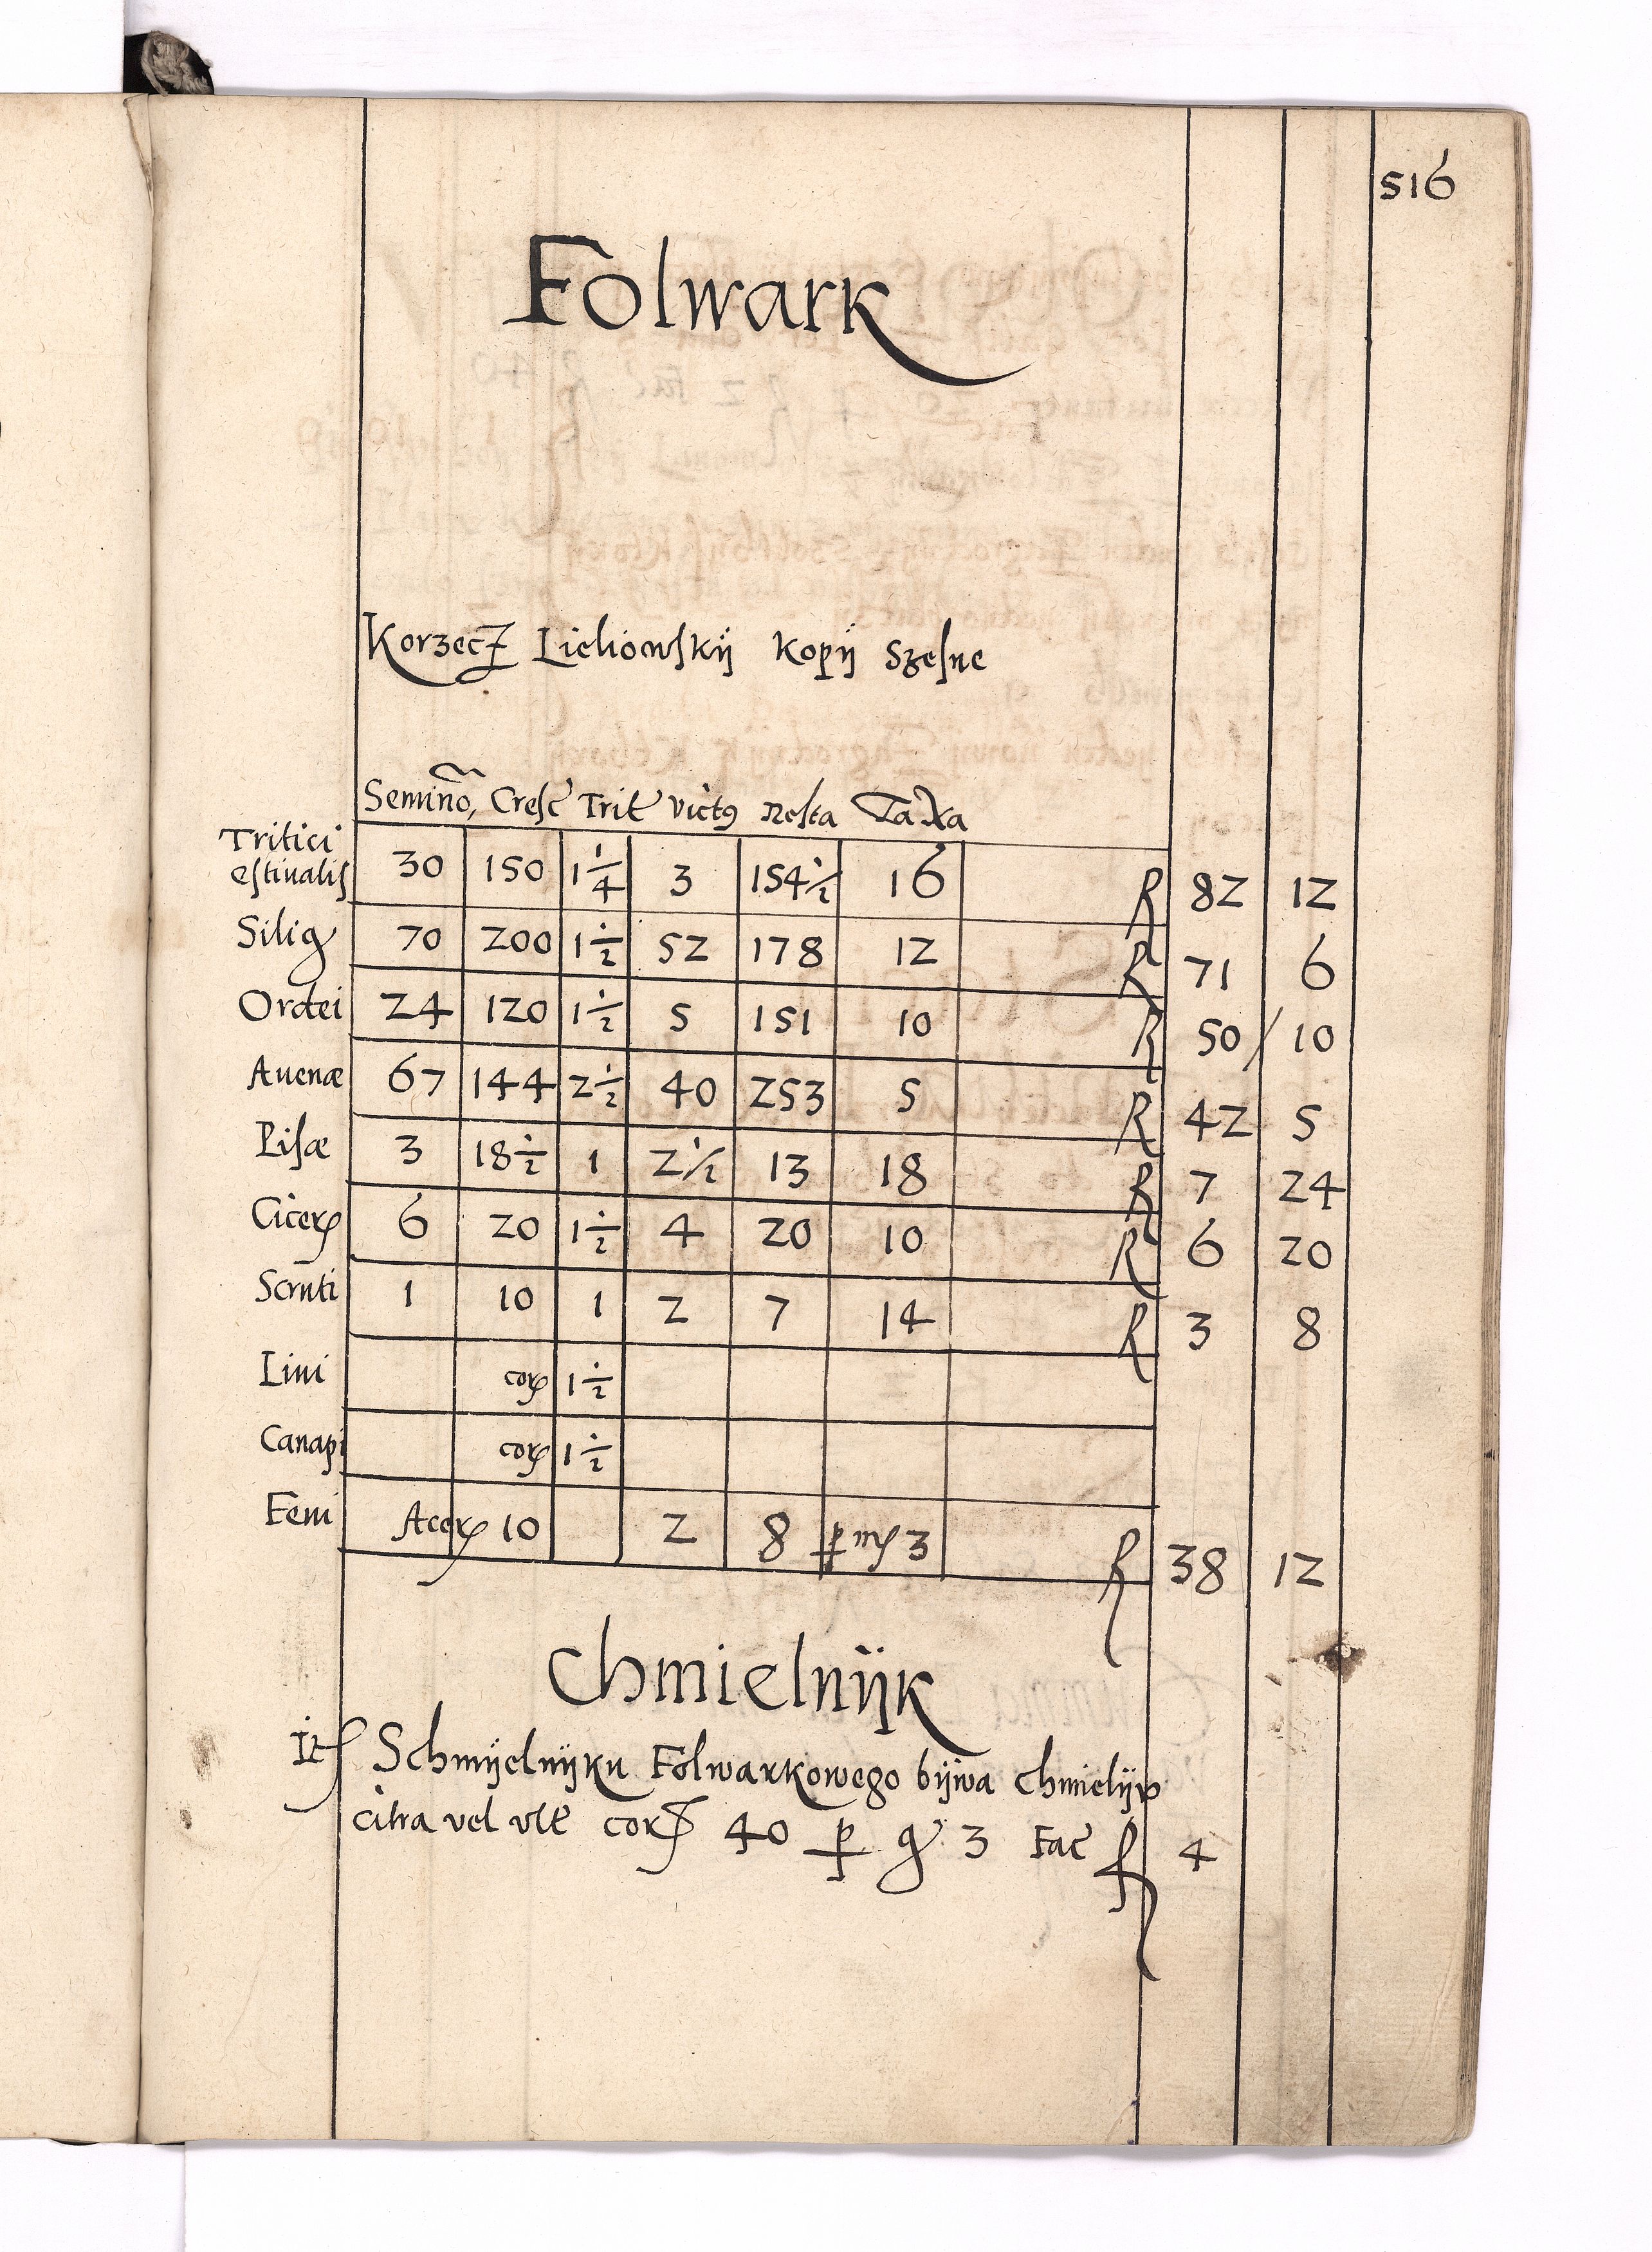 516
Folwark
Korzecz Lieliowskij kopij szesne
Semino, Cresc Trit victꝰ Resta Taxa
Tritici estiualis 30 150 1 1/4 3 154 1/2 16 R 82 12
Silig 70 200 1 1/2 52 178 12 R 71 6
Ordei 24 120 1 1/2 5 151 10 R 50 / 10
Auenæ 67 144 2 1/2 40 253 5 R 42 5
Pisæ 3 18 1/2 1 2 1/2 13 18 R 7 24
Cicerꝭ 6 20 1 1/2 4 20 10 R 6 20
1 10 1 2 7 14 R 3 8
Lini corꝭ 1 1/2
Canapi corꝭ 1 1/2
Feni Acerꝭ 10 2 8 ꝑ mꝭ 3 R 38 12
Chmielnijk
It Schmijelnijku Folwarkowego bijwa chmielijv
citra vel vlt corꝭ 40 ꝑ g 3 Fac R 4